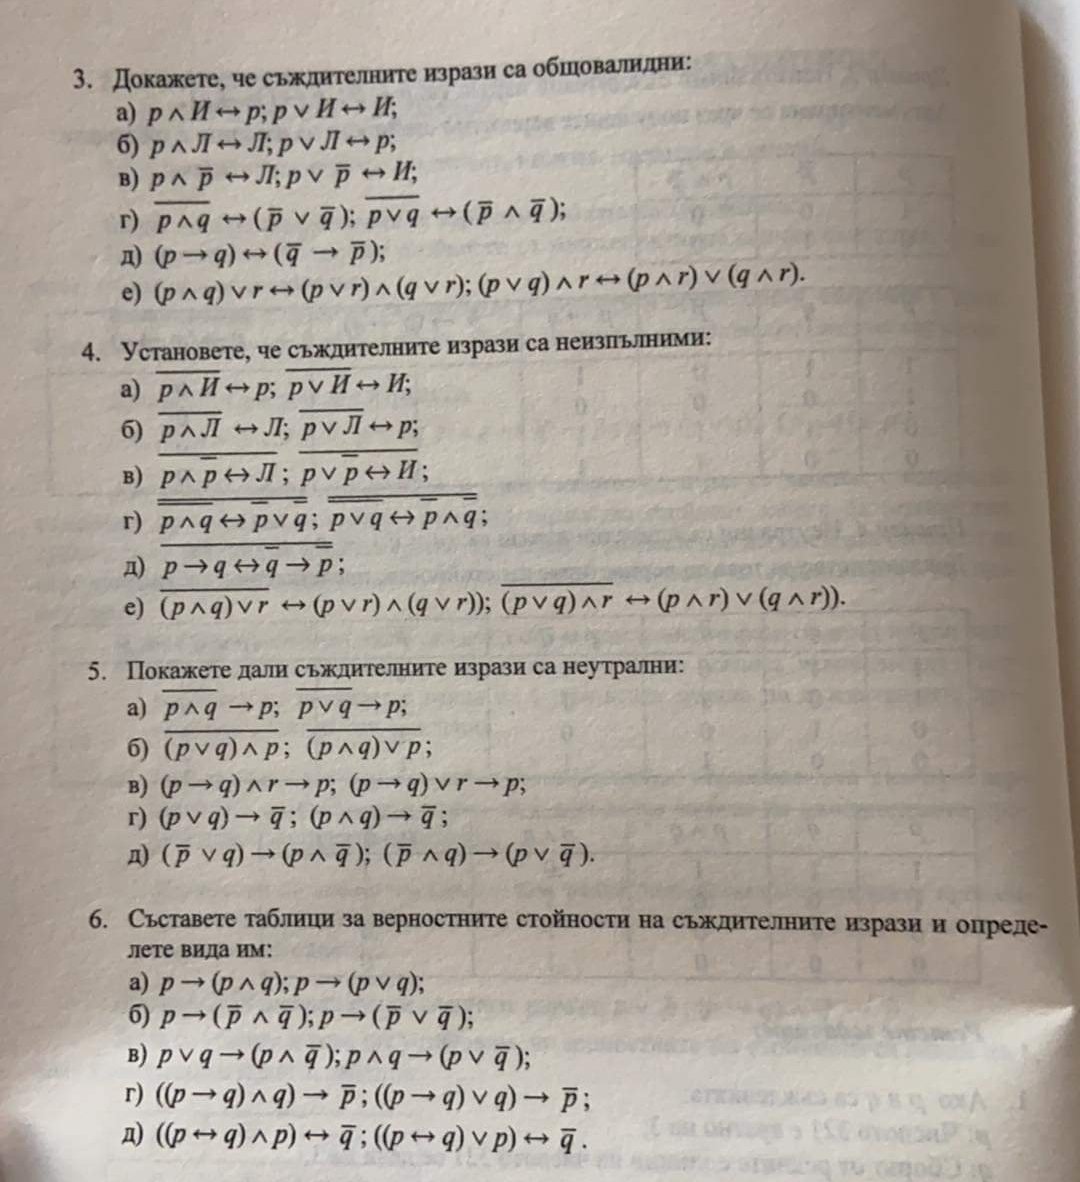 3. Докажете, че съждителните изрази са общовалидни:
а) p ∧ И ↔ p; p ∨ И ↔ И;
б) p ∧ Л ↔ Л; p ∨ Л ↔ p;
в) p ∧ p̅ ↔ Л; p ∨ p̅ ↔ И;
г) \overline{p ∧ q} ↔ (p̅ ∨ q̅); \overline{p ∨ q} ↔ (p̅ ∧ q̅);
д) (p → q) ↔ (q̅ → p̅);
е) (p ∧ q) ∨ r ↔ (p ∨ r) ∧ (q ∨ r); (p ∨ q) ∧ r ↔ (p ∧ r) ∨ (q ∧ r).
4. Установете, че съждителните изрази са неизпълними:
а) \overline{p ∧ И} ↔ p; \overline{p ∨ И} ↔ И;
б) \overline{p ∧ Л} ↔ Л; \overline{p ∨ Л} ↔ p;
в) \overline{p ∧ p̅ ↔ Л}; \overline{p ∨ p̅ ↔ И};
г) \overline{\overline{p ∧ q} ↔ p̅ ∨ q̅}; \overline{\overline{p ∨ q} ↔ p̅ ∧ q̅};
д) \overline{p → q ↔ q̅ → p̅};
е) \overline{(p ∧ q) ∨ r} ↔ (p ∨ r) ∧ (q ∨ r)); \overline{(p ∨ q) ∧ r} ↔ (p ∧ r) ∨ (q ∧ r)).
5. Покажете дали съждителните изрази са неутрални:
а) \overline{p ∧ q} → p; \overline{p ∨ q} → p;
б) \overline{(p ∨ q) ∧ p}; \overline{(p ∧ q) ∨ p};
в) (p → q) ∧ r → p; (p → q) ∨ r → p;
г) (p ∨ q) → q̅; (p ∧ q) → q̅;
д) (p̅ ∨ q) → (p ∧ q̅); (p̅ ∧ q) → (p ∨ q̅).
6. Съставете таблици за верностните стойности на съждителните изрази и опреде-
лете вида им:
а) p → (p ∧ q); p → (p ∨ q);
б) p → (p̅ ∧ q̅); p → (p̅ ∨ q̅);
в) p ∨ q → (p ∧ q̅); p ∧ q → (p ∨ q̅);
г) ((p → q) ∧ q) → p̅; ((p → q) ∨ q) → p̅;
д) ((p ↔ q) ∧ p) ↔ q̅; ((p ↔ q) ∨ p) ↔ q̅.